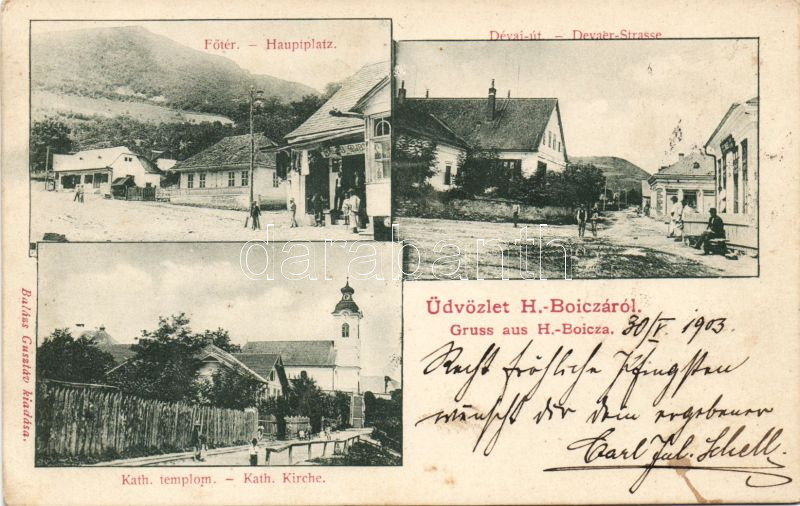 Főtér. – Hauptplatz.
Dévai-út. – Devaer-Strasse
darabanth
Kath. templom. – Kath. Kirche.
Balázs Gusztáv kiadása.
Üdvözlet H.-Boiczáról.
Gruss aus H.-Boicza. 30/V. 1903.
Recht fröhliche Pfingsten
wünscht dir dein ergebener
Carl Jul. Schell.